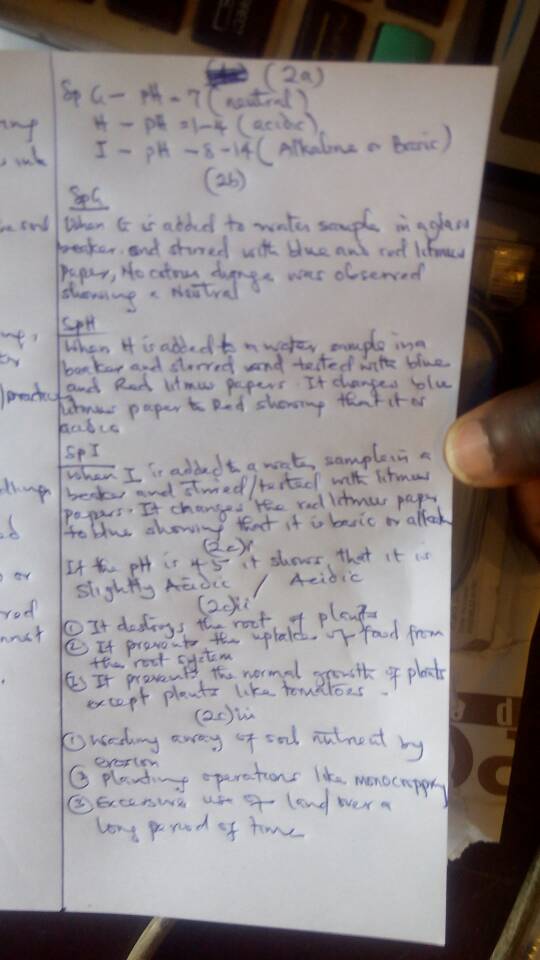 (2a)
Sp G - pH = 7 (neutral)
H - pH = 1-4 (acidic)
I - pH - 8 - 14 (Alkaline or Basic)
(2b)
Sp G
When G is added to water sample in a glass
beaker and stirred with blue and red litmus
paper, No colour change was observed
showing a Neutral
Sp H
When H is added to a water sample in a
beaker and stirred and tested with blue
and Red litmus papers. It changes blue
litmus paper to Red showing that it is
acidic
Sp I
When I is added to a water sample in a
beaker and stirred/tested with litmus
papers. It changes the red litmus paper
to blue showing that it is basic or
(2c)i
If the pH is 4.5 it shows that it is
slightly Acidic / Acidic
(2c)ii
① It destroys the root of plants
② It prevents the uptake of food from
the root system
It prevents the normal growth of plants
except plants like tomatoes.
(2c)iii
① Washing away of soil nutrient by
erosion
② Planting operations like monocropping
③ Excessive use of land over a
long period of time